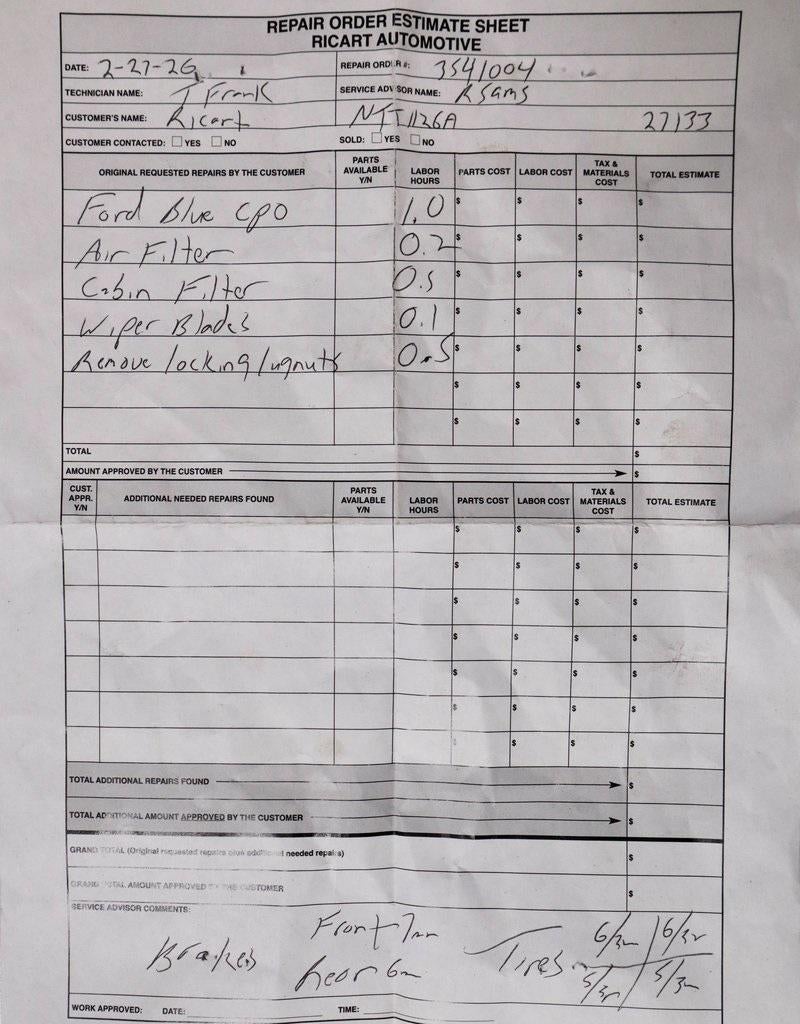 REPAIR ORDER ESTIMATE SHEET
RICART AUTOMOTIVE
DATE: 2-27-26 REPAIR ORDER #: 3541004
TECHNICIAN NAME: T Frank SERVICE ADVISOR NAME: R Sams
CUSTOMER'S NAME: Ricart NTI1126A 27133
CUSTOMER CONTACTED: YES NO SOLD: YES NO
ORIGINAL REQUESTED REPAIRS BY THE CUSTOMER PARTS AVAILABLE Y/N LABOR HOURS PARTS COST LABOR COST TAX & MATERIALS COST TOTAL ESTIMATE
Ford Blue CPO 1.0 $ $ $ $
Air Filter 0.2 $ $ $ $
Cabin Filter 0.5 $ $ $ $
Wiper Blades 0.1 $ $ $ $
Remove locking lugnuts 0.5 $ $ $ $
$ $ $ $
$ $ $ $
TOTAL $
AMOUNT APPROVED BY THE CUSTOMER $
CUST. APPR. Y/N ADDITIONAL NEEDED REPAIRS FOUND PARTS AVAILABLE Y/N LABOR HOURS PARTS COST LABOR COST TAX & MATERIALS COST TOTAL ESTIMATE
$ $ $ $
$ $ $ $
$ $ $ $
$ $ $ $
$ $ $ $
$ $ $ $
$ $ $ $
TOTAL ADDITIONAL REPAIRS FOUND $
TOTAL ADDITIONAL AMOUNT APPROVED BY THE CUSTOMER $
GRAND TOTAL (Original requested repairs plus additional needed repairs) $
GRAND TOTAL AMOUNT APPROVED BY THE CUSTOMER $
SERVICE ADVISOR COMMENTS:
Brakes Front 7mm Tires 6/32 6/32
Rear 6m 5/32 5/32
WORK APPROVED: DATE: TIME: